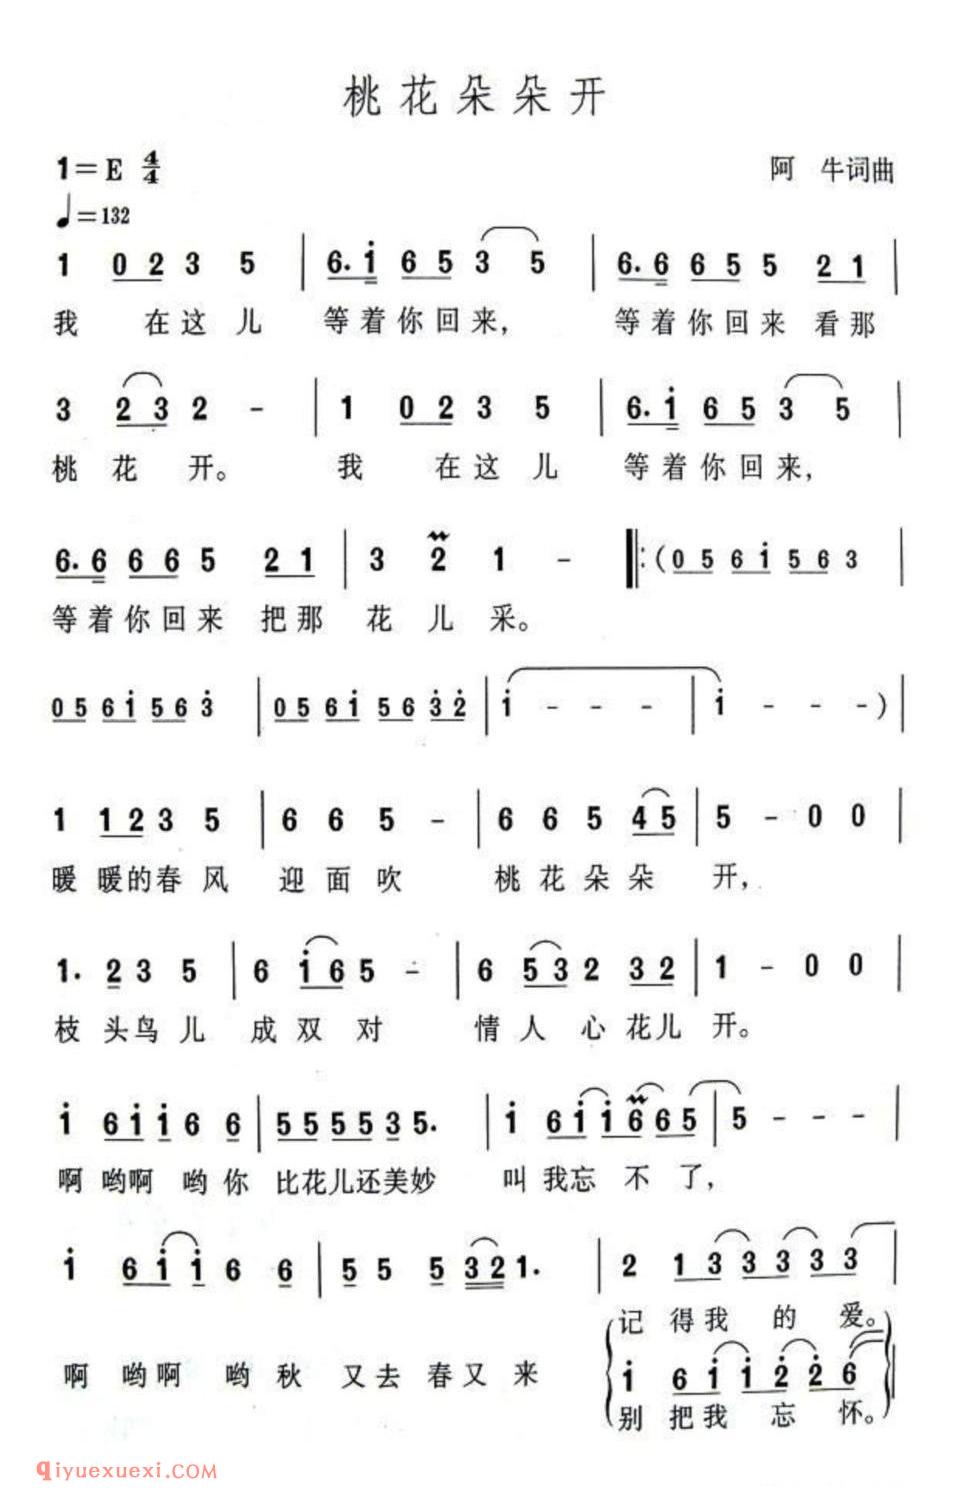 桃花朵朵开
1=E 4/4
阿 牛词曲
♩=132
1 0 2 3 5 | 6. i 6 5 3 5 | 6. 6 6 5 5 2 1 |
我 在这儿 等着你回来, 等着你回来 看那
3 2 3 2 - | 1 0 2 3 5 | 6. i 6 5 3 5 |
桃 花 开。 我 在这儿 等着你回来,
6. 6 6 6 5 2 1 | 3 2 1 - ‖: (0 5 6 i 5 6 3 |
等着你回来 把那 花儿 采。
0 5 6 i 5 6 3̇ | 0 5 6 i 5 6 3̇ 2̇ | i - - - | i - - -) |
1 1 2 3 5 | 6 6 5 - | 6 6 5 4 5 | 5 - 0 0 |
暖 暖的春风 迎面吹 桃花朵朵 开,
1. 2 3 5 | 6 i 6 5 - | 6 5 3 2 3 2 | 1 - 0 0 |
枝 头鸟儿 成双对 情人心花儿 开。
i 6 i i 6 6 | 5 5 5 5 3 5. | i 6 i i 6 6 5 | 5 - - - |
啊 哟啊 哟你 比花儿还美妙 叫我忘不了,
i 6 i i 6 6 | 5 5 5 3 2 1. | 2 1 3 3 3 3 3 |
记 得我 的 爱。
啊 哟啊 哟秋 又去春又来 i 6 i i 2̇ 2̇ 6
别 把我 忘 怀。
qiyuexuexi.COM